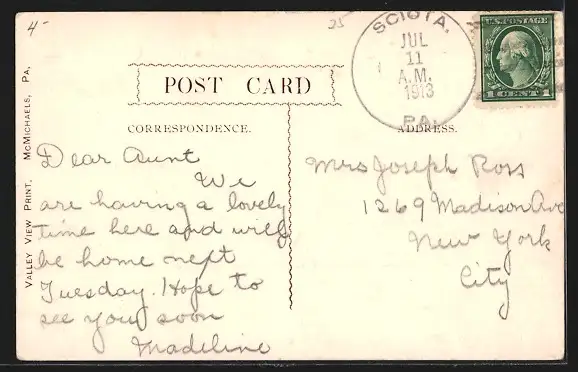 4-
25
SCIOTA.
JUL
11
A.M.
1913
PA.
U.S. POSTAGE
1 CENT 1
POST CARD
CORRESPONDENCE.
ADDRESS.
VALLEY VIEW PRINT. MCMICHAELS, PA.
Dear Aunt
We
are having a lovely
time here and will
be home next
Tuesday. Hope to
see you soon
Madeline
Mrs Joseph Ross
1269 Madison Ave
New York
City